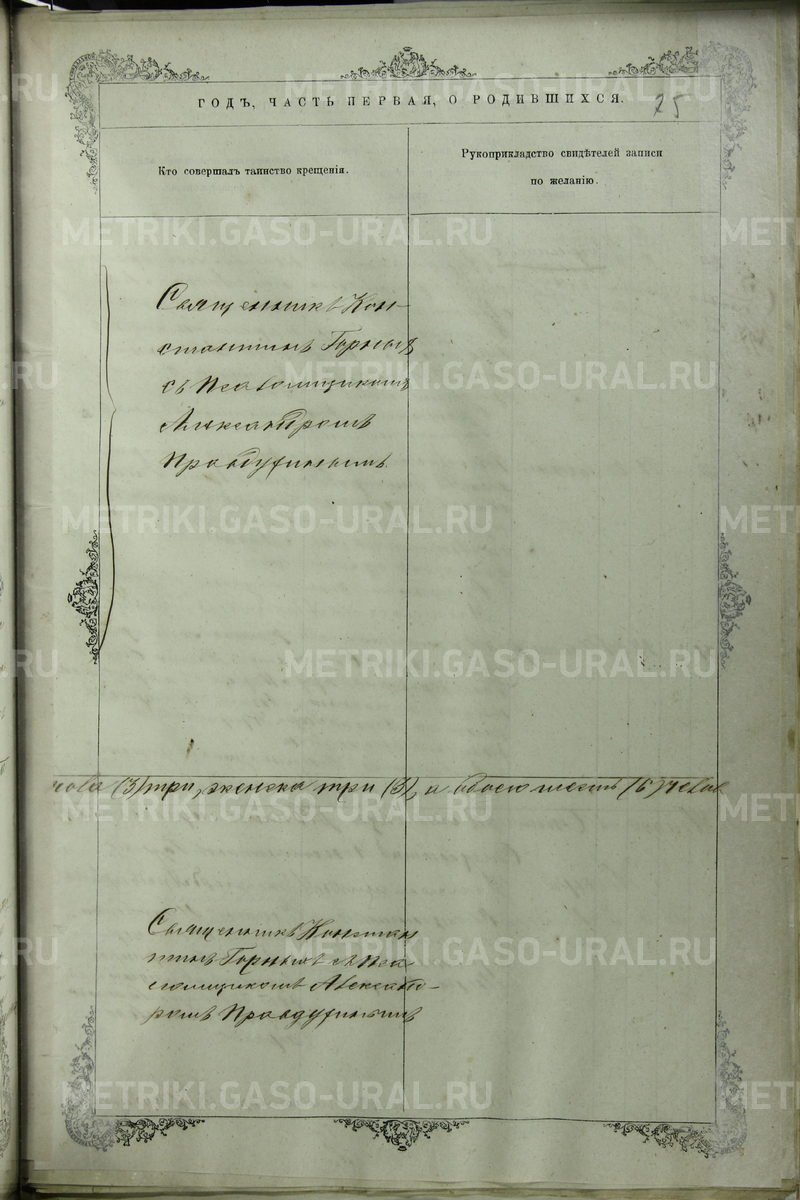 ГОДЪ, ЧАСТЬ ПЕРВАЯ, О РОДИВШИХСЯ. 25
Кто совершалъ таинство крещенія.
Рукоприкладство свидѣтелей записи
по желанію.
Священникъ Кон-
стантинъ Горныхъ
съ Псаломщикомъ
Александромъ
Правдухинымъ
(3) три, женска три (3), а обоего шесть (6)
Священникъ Констан
тинъ Горныхъ съ Пса-
ломщикомъ Александ-
ромъ Правдухинымъ
METRIKI.GASO-URAL.RU